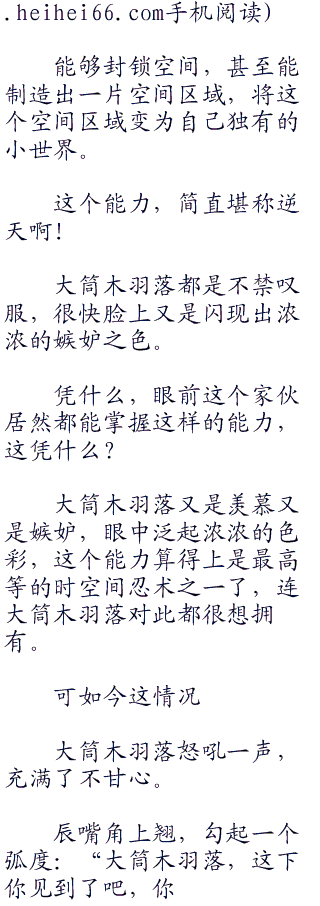 .heihei66.com手机阅读)
能够封锁空间，甚至能
制造出一片空间区域，将这
个空间区域变为自己独有的
小世界。
这个能力，简直堪称逆
天啊！
大筒木羽落都是不禁叹
服，很快脸上又是闪现出浓
浓的嫉妒之色。
凭什么，眼前这个家伙
居然都能掌握这样的能力，
这凭什么？
大筒木羽落又是羡慕又
是嫉妒，眼中泛起浓浓的色
彩，这个能力算得上是最高
等的时空间忍术之一了，连
大筒木羽落对此都很想拥
有。
可如今这情况
大筒木羽落怒吼一声，
充满了不甘心。
辰嘴角上翘，勾起一个
弧度：“大筒木羽落，这下
你见到了吧，你